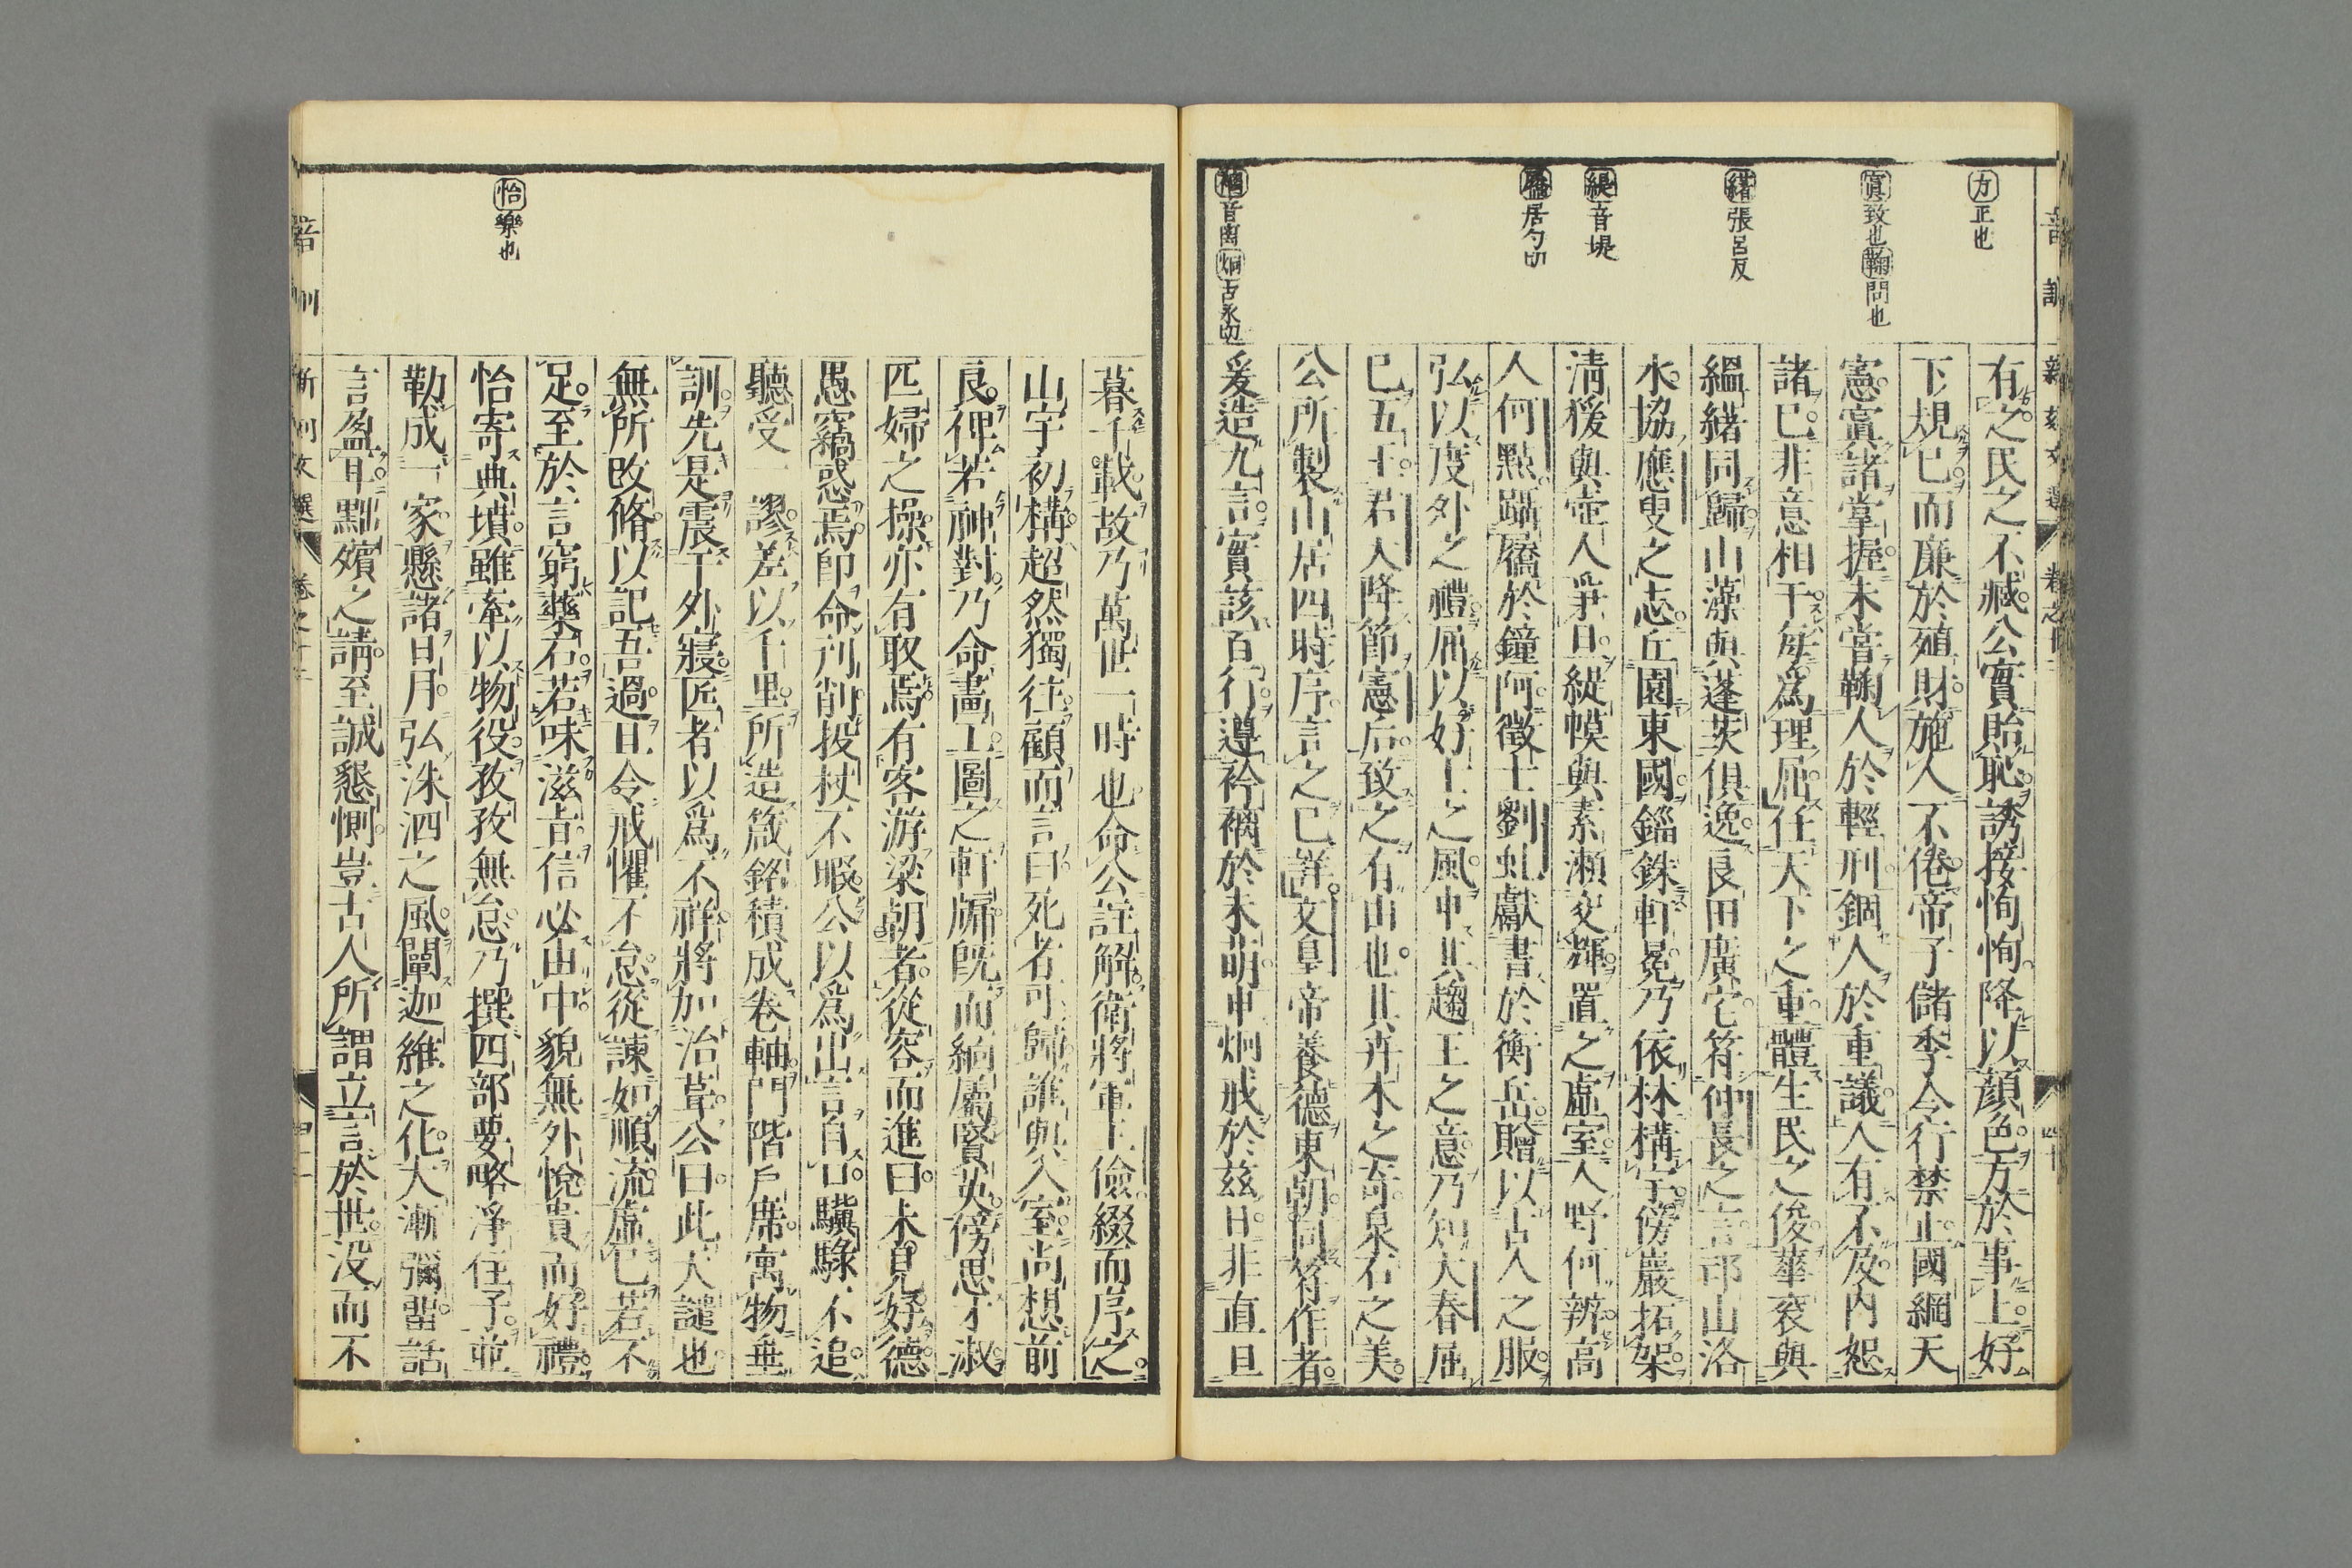 方 正也
寘 致也 鞠 問也
緒 張呂反
緹 音堤
屩 居勺切
褵 音离 炯 古永切
有之民之不臧公實貽恥誘接恂恂降以顏色方於事上好
下規巳而廉於殖財施人不倦帝子儲季令行禁止國網天
憲寘諸掌握未嘗鞠人於輕刑錮人於重議人有不及内恕
諸巳非意相干每爲理屈任天下之重體生民之俊華衮與
緼緒同歸山藻與蓬茨俱逸良田廣宅符仲長之言邙山洛
水協應叟之志丘園東國錙銖軒冕乃依林構宇傍巖拓架
清猨與壺人爭旦緹幙與素瀨交輝置之虛室人野何辨高
人何點躡屩於鐘阿徵士劉虬獻書於衡岳贈以古人之服
弘以度外之禮屈以好士之風申其趨王之意乃知大春屈
巳五十君大降節憲后致之有由也其卉木之奇泉石之美
公所製山居四時序言之已詳文皇帝養德東朝同符作者
爰造九言實該百行遵衿褵於未萌申炯戒於茲日非直旦
暮千載故乃萬世一時也命公註解衛將軍王儉綴而序之
山宇初構超然獨往顧而言曰死者可歸誰與入室尚想前
良俾若神對乃命畫工圖之軒牖旣而緬屬賢英傍思才淑
匹婦之操亦有取焉有客游梁朝者從容而進曰未見好德
愚竊惑焉卽命刋削投杖不暇公以爲出言自口驥騄不追
聽受一謬差以千里所造箴銘積成卷軸門階戶席寓物垂
訓先是震于外寢匠者以爲不祥將加治葺公曰此天譴也
無所改脩以記吾過且令戒懼不怠從諫如順流虛已若不
足至於言窮藥石若味滋旨信必由中貌無外悅貴而好禮
怡寄典墳雖牽以物役孜孜無怠乃撰四部要略淨住子並
勒成一家懸諸日月弘洙泗之風闡迦維之化大漸彌留話
言盈耳黜殯之請至誠懇惻豈古人所謂立言於世沒而不
怡 樂也